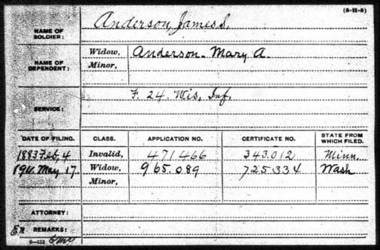 (3-111-8)
NAME OF SOLDIER: Anderson, James S.
NAME OF DEPENDENT: Widow, Anderson- Mary A.
Minor,
SERVICE: F. 24. Wis, Inf.
DATE OF FILING. CLASS. APPLICATION NO. CERTIFICATE NO. STATE FROM WHICH FILED.
1883 Feb, 4 Invalid, 471466 343.012 Minn
1911 May 17. Widow, 965.089 725.334 Wash
Minor,
ATTORNEY:
REMARKS: